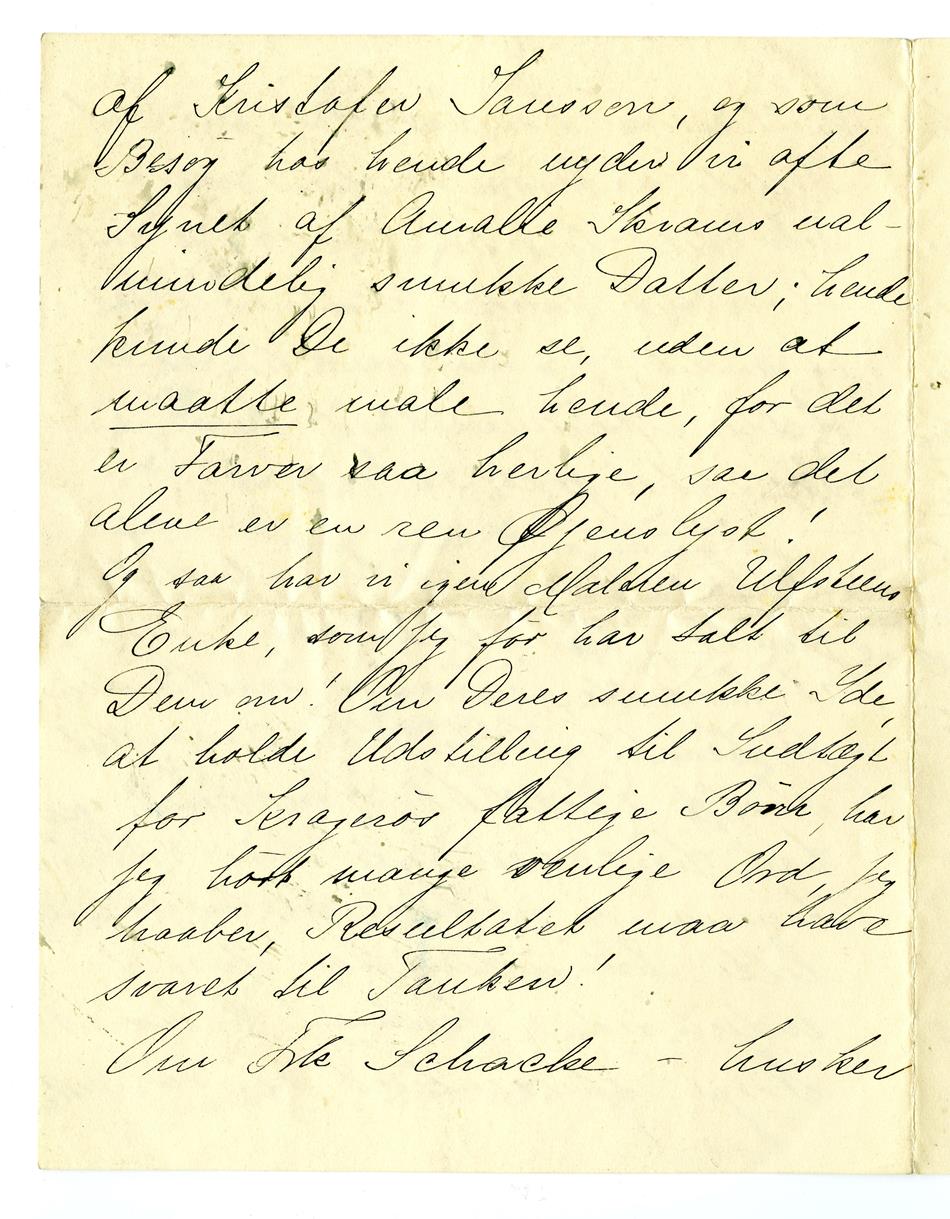 af Kristofer Jansson, og som
Besøg hos hende nyder vi ofte
Synet af Amalie Skrams ual-
mindelig smukke Datter; hende
kunde De ikke se, uden at
maatte male hende, for det
er Farver saa herlige, saa det
alene er en ren Øjenslyst!
Og saa har vi igen Maleren Ulfstens
Enke, som jeg før har talt til
Dem om! Om Deres smukke Ide,
at holde Udstilling til Indtægt
for Kragerøs fattige Børn, har
jeg hørt mange venlige Ord, jeg
haaber, Resultatet maa have
svaret til Tanken!
Om Frk Schacke – husker